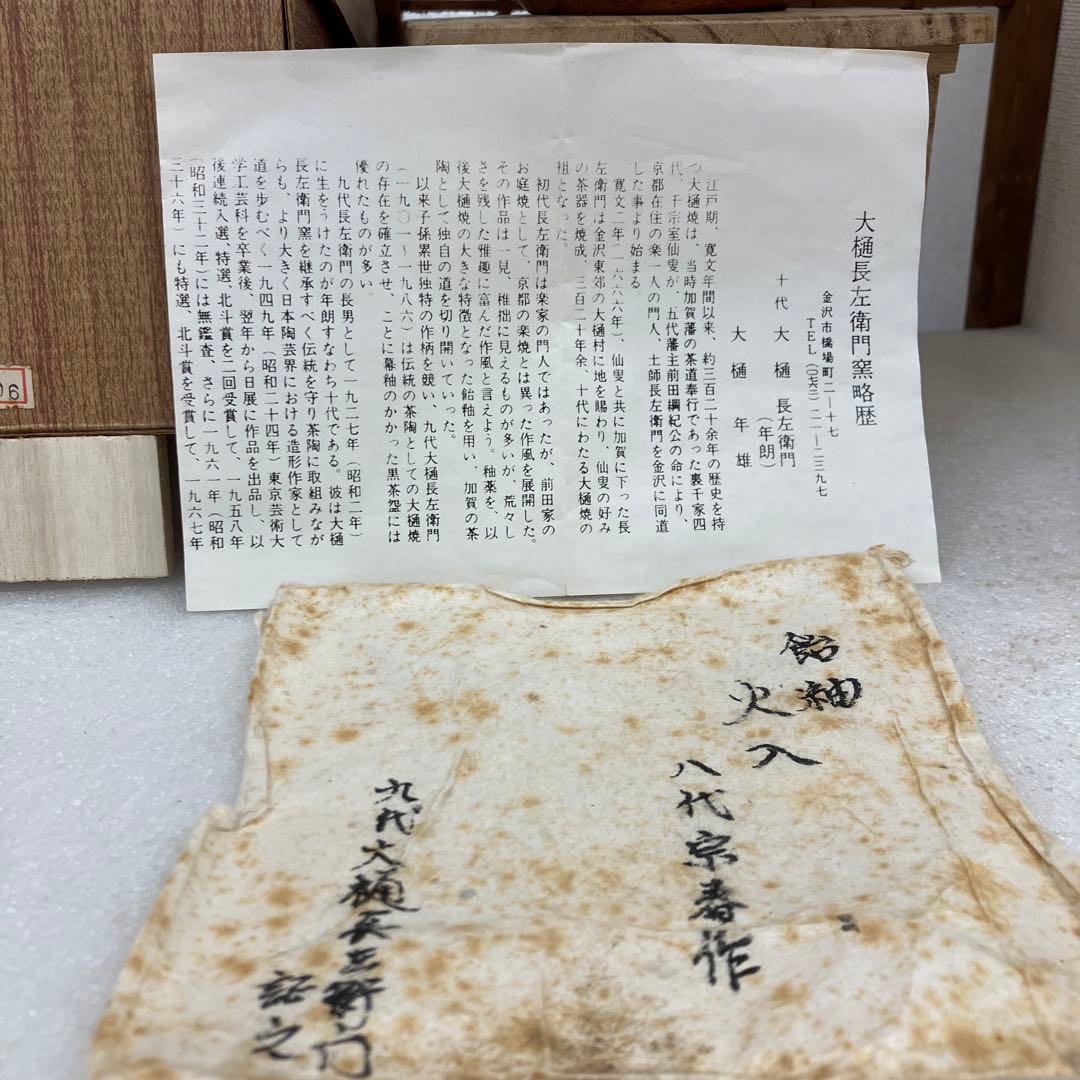 大樋長左衛門窯略歴
金沢市橋場町二―十七
TEL(〇七六二)二一―二三九七
十代 大樋長左衛門
(年朗)
大樋年雄
江戸期、寛文年間以来、約三百二十余年の歴史を持
つ大樋焼は、当時加賀藩の茶道奉行であった裏千家四
代、千宗室仙叟が、五代藩主前田綱紀公の命により、
京都在住の楽一入の門人、土師長左衛門を金沢に同道
した事より始まる。
寛文二年(一六六六年)、仙叟と共に加賀に下った長
左衛門は金沢東郊の大樋村に地を賜わり、仙叟の好み
の茶器を焼成、三百二十年余、十代にわたる大樋焼の
祖となった。
初代長左衛門は楽家の門人ではあったが、前田家の
お庭焼として、京都の楽焼とは異った作風を展開した。
その作品は一見、稚拙に見えるものが多いが、荒々し
さを残した雅趣に富んだ作風と言えよう。釉薬を、以
後大樋焼の大きな特徴となった飴釉を用い、加賀の茶
陶として独自の道を切り開いていった。
以来子孫累世独特の作柄を競い、九代大樋長左衛門
(一九〇一~一九八六)は伝統の茶陶としての大樋焼
の存在を確立させ、ことに幕釉のかかった黒茶盌には
優れたものが多い。
九代長左衛門の長男として一九二七年(昭和二年)
に生をうけたのが年朗すなわち十代である。彼は大樋
長左衛門窯を継承すべく伝統を守り茶陶に取組みなが
らも、より大きく日本陶芸界における造形作家として
道を歩むべく一九四九年(昭和二十四年)東京芸術大
学工芸科を卒業後、翌年から日展に作品を出品し、以
後連続入選、特選、北斗賞を二回受賞して、一九五八年
(昭和三十二年)には無鑑査、さらに一九六一年(昭和
三十六年)にも特選、北斗賞を受賞して、一九六七年
飴釉
火入
八代宗寿作
九代大樋長左衛門
記之
06